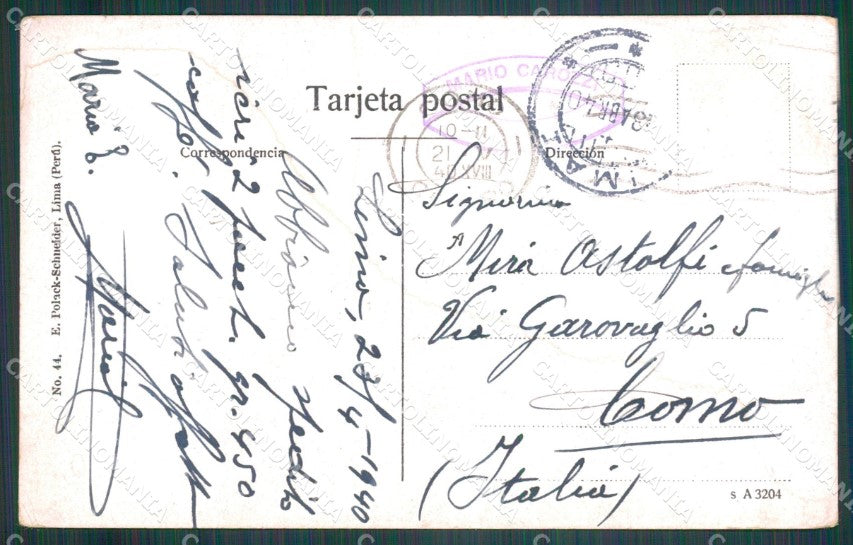 Tarjeta postal
Correspondencia
Dirección
MARIO
LIMA
10-11
21
40 XVIII
Lima, 23/4-1940
Abbiamo spedito
ieri 2 pacch. gr. 450
caffè. Saluti affett.
Mario E.
Signorina
Mira Astolfi e famiglia
Via Garovaglio 5
Como
(Italia)
No. 44. E. Polack-Schneider, Lima (Perú).
s A 3204
CARTOLINOMANIA